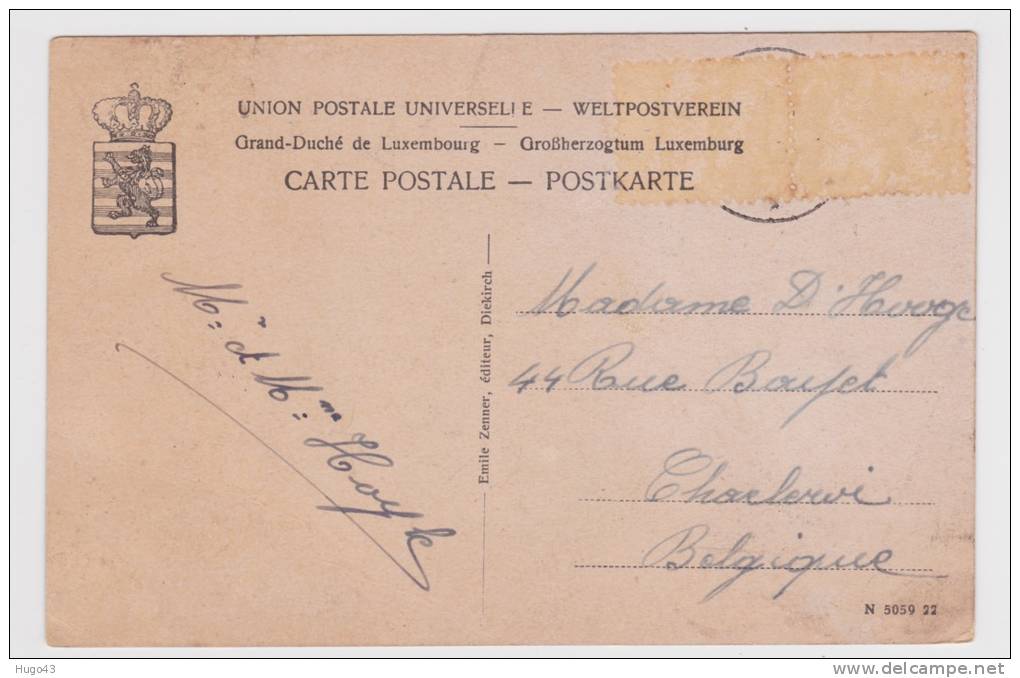 UNION POSTALE UNIVERSELLE — WELTPOSTVEREIN
Grand-Duché de Luxembourg — Großherzogtum Luxemburg
CARTE POSTALE — POSTKARTE
Mr & Mme
Emile Zenner, éditeur, Diekirch
Madame D'Hooge
44 Rue
Charleroi
Belgique
N 5059 22
Hugo43
delcampe.net